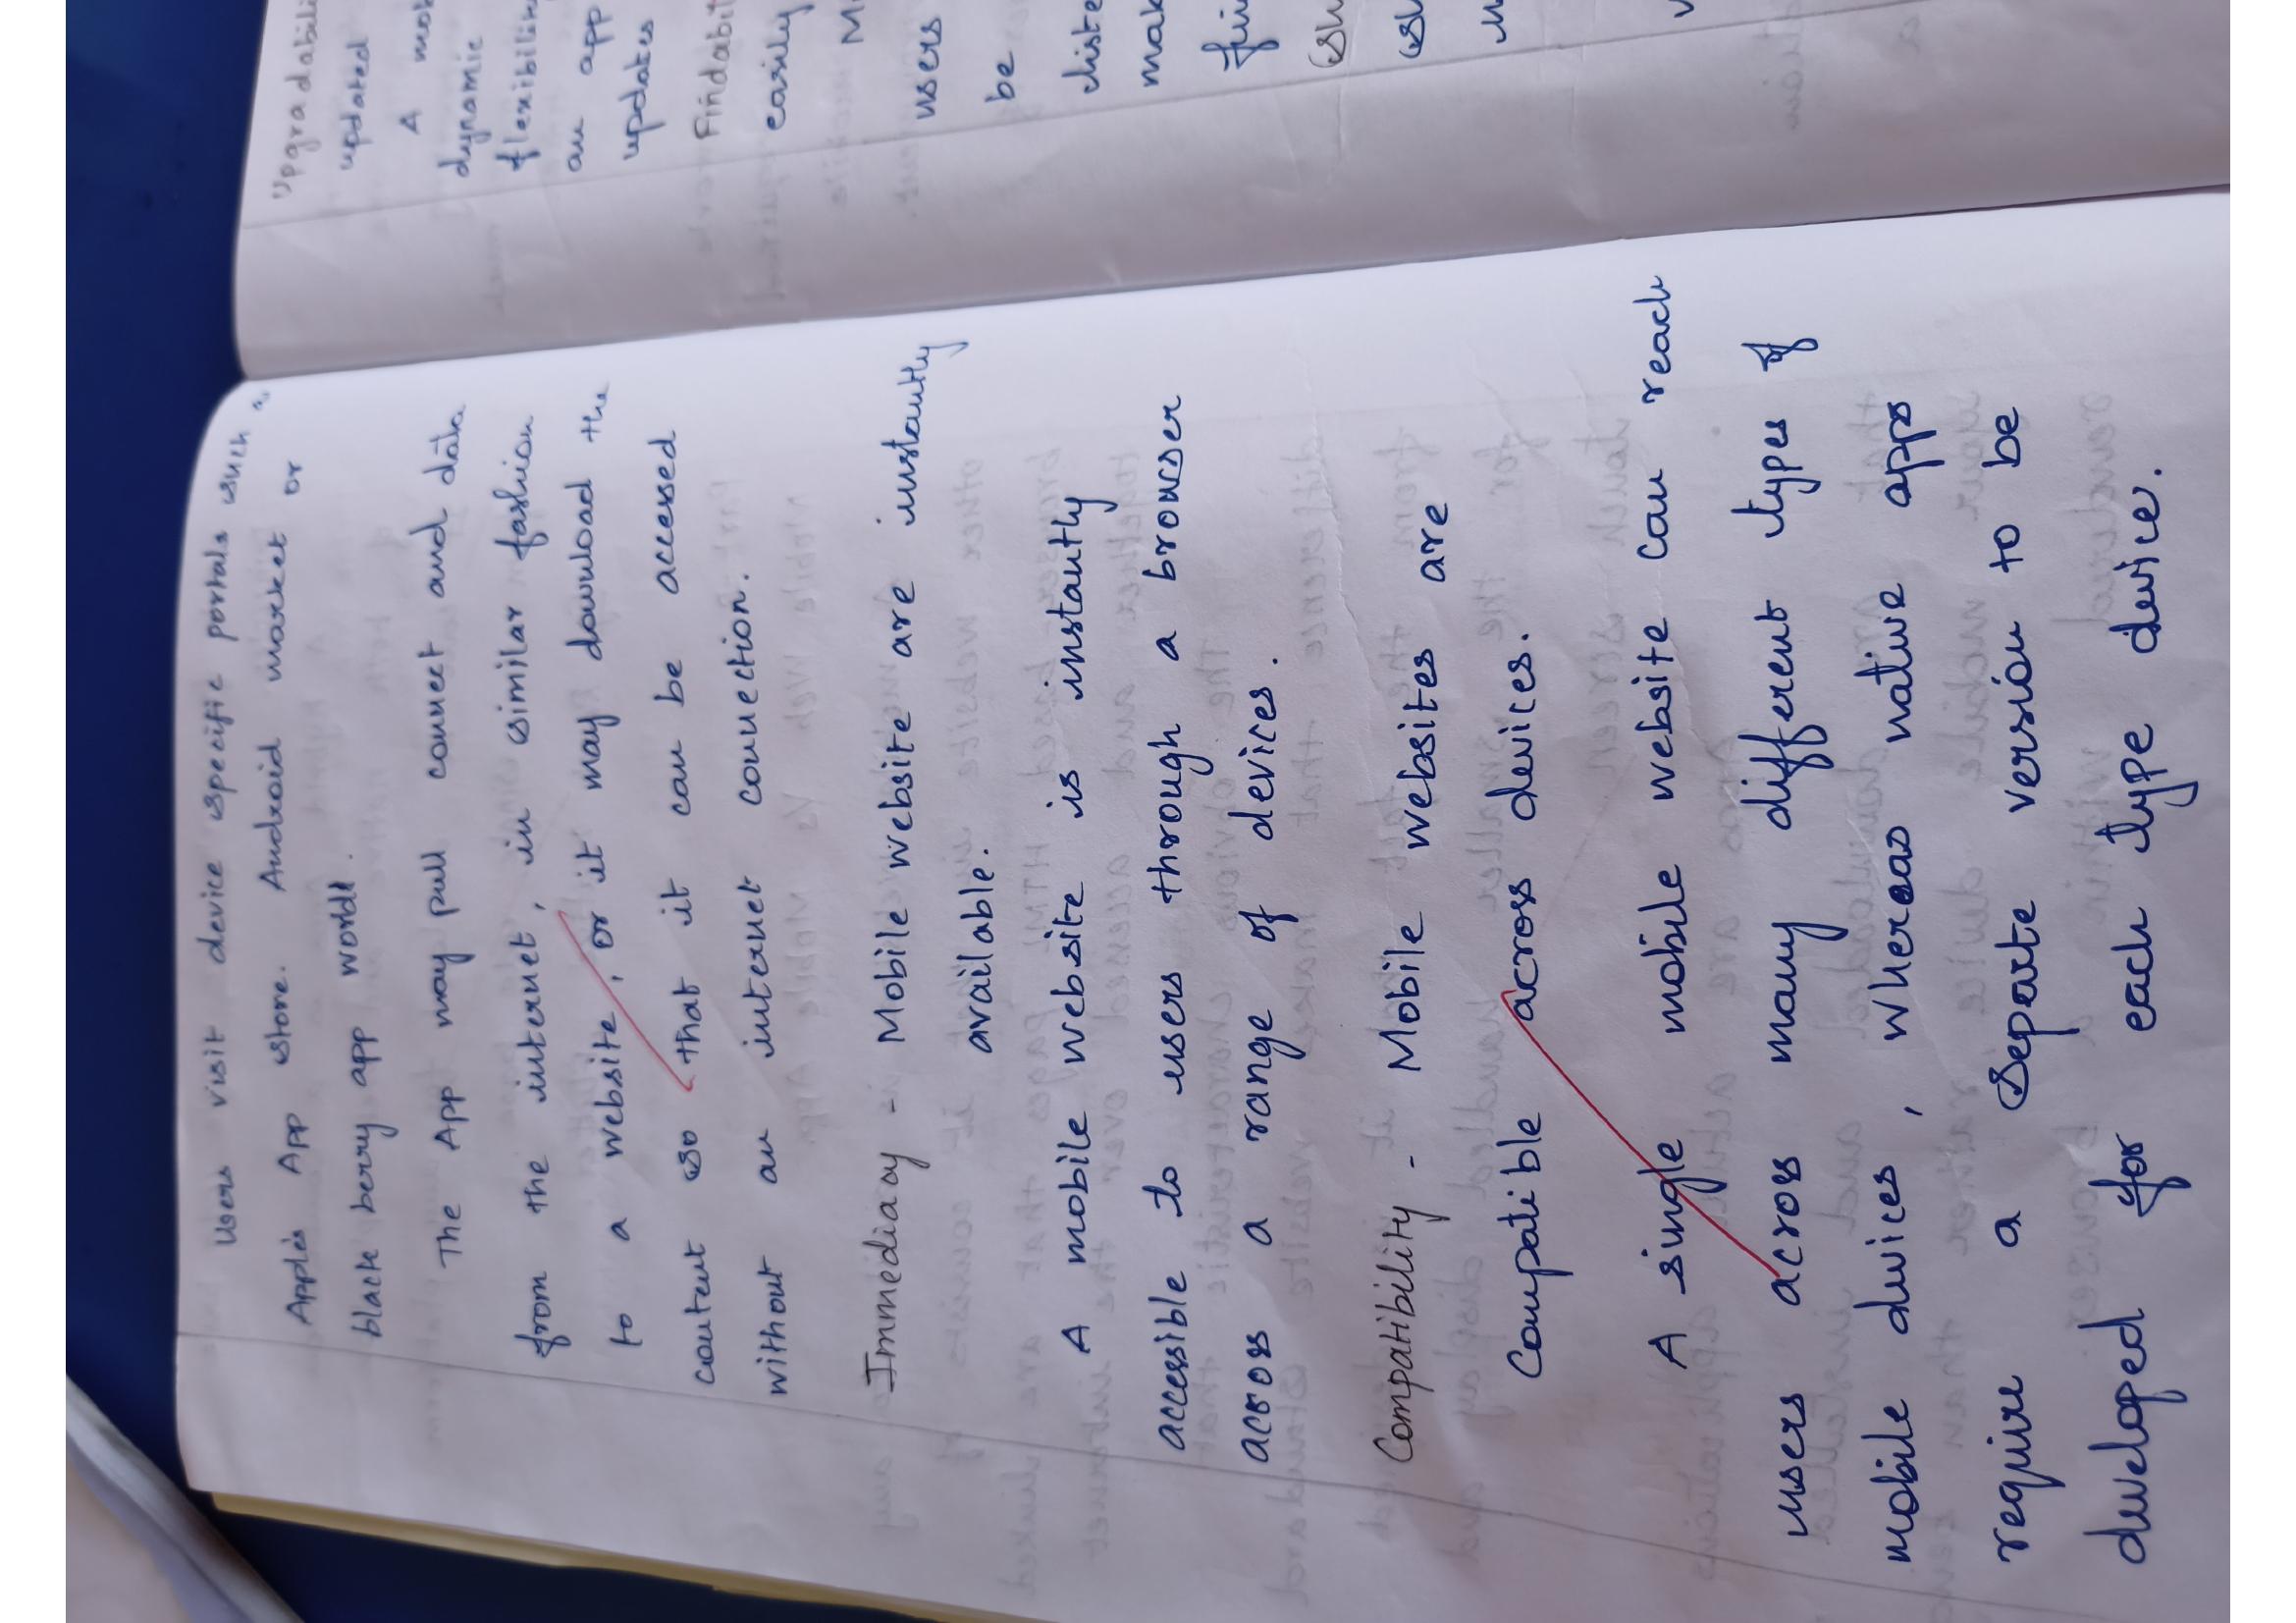 Users visit device specific portals such as
Apple's App store. Android market or
black berry app world.
The App may pull connect and data
from the internet, in similar fashion
to a website, or it may download the
content so that it can be accessed
without an internet connection.
Immediacy - Mobile website are instantly
available.
A mobile website is instantly
accessible to users through a browser
across a range of devices.
Compatibility - Mobile websites are
Compatible across devices.
A single mobile website can reach
users across many different types of
mobile devices, whereas native apps
require a separte version to be
developed for each type device.
Upgradabili
updated
A mob
dynamic
flexibilit
an app
updates
Findabil
easily
M
users
be
liste
mak